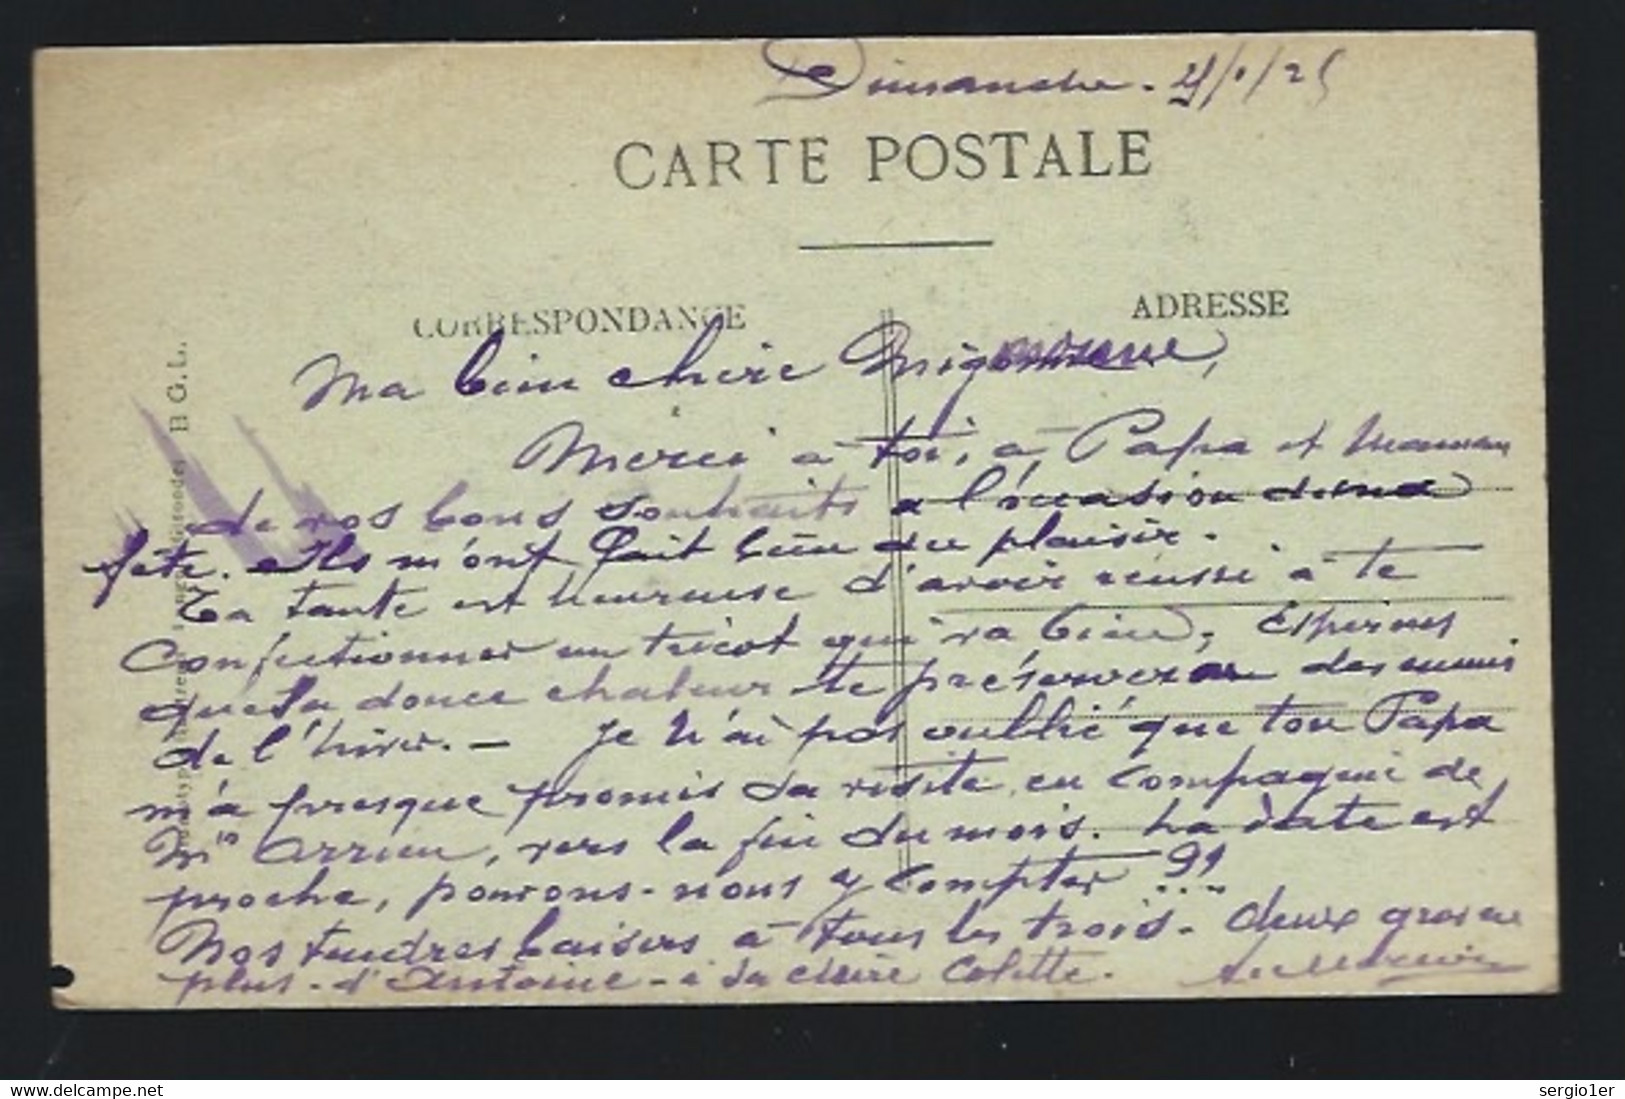 Dimanche. 4/1/25
CARTE POSTALE
CORRESPONDANCE
ADRESSE
B G. L.
Ma bien chère Mignonne,
Merci à toi, à Papa et Maman
de vos bons souhaits à l'occasion de ma
fête. Ils m'ont fait bien du plaisir.
Ta tante est heureuse d'avoir réussi à te
confectionner un tricot qui va bien, Espérons
que sa douce chaleur te préservera des ennuis
de l'hiver. — Je n'ai pas oublié que ton Papa
m'a presque promis sa visite en compagnie de
Mrs Arrieu, vers la fin du mois. La date est
proche, pouvons-nous y compter ??...
Nos tendres baisers à tous les trois. deux gros en
plus. d'Antoine - à sa chère Colette.
www.delcampe.net
sergio1er